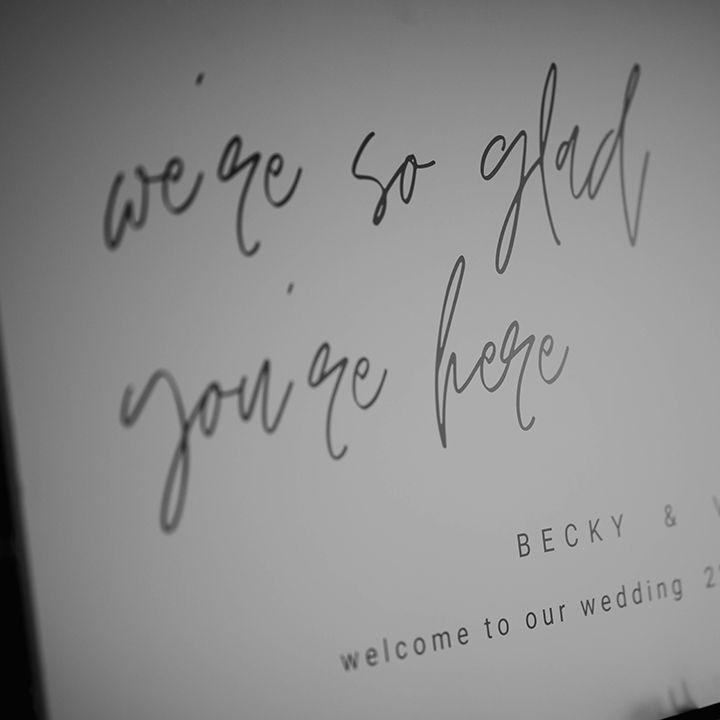 we're so glad
you're here
BECKY &
welcome to our wedding